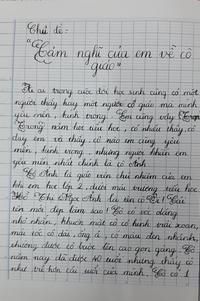 Chủ đề:
"Cảm nghĩ của em về cô
giáo"
Ai ai trong cuộc đời học sinh cũng có một
người thầy hay một người cô giáo mà mình
yêu mến, kính trọng. Em cũng vậy
Trong năm học qua, có nhiều thầy, cô
dạy em và thầy, cô nào em cũng yêu
mến, kính trọng nhưng người khiến em
yêu mến nhất chính là cô Ánh.
Cô Ánh là giáo viên chủ nhiệm của em
khi em học lớp 2, dưới mái trường tiểu học.
Ngọc Ánh là tên cô ấy! Cái
tên mới đẹp làm sao! Cô có vóc dáng
nhỏ nhắn, khuôn mặt cô có hình trái xoan,
mái tóc cô dài, óng ả, có màu đen nhánh,
nhưng được cô buộc lên cao gọn gàng. Cô
năm nay đã được 40 tuổi nhưng thấy cô
như trẻ hơn cái tuổi của mình. Cô có 1